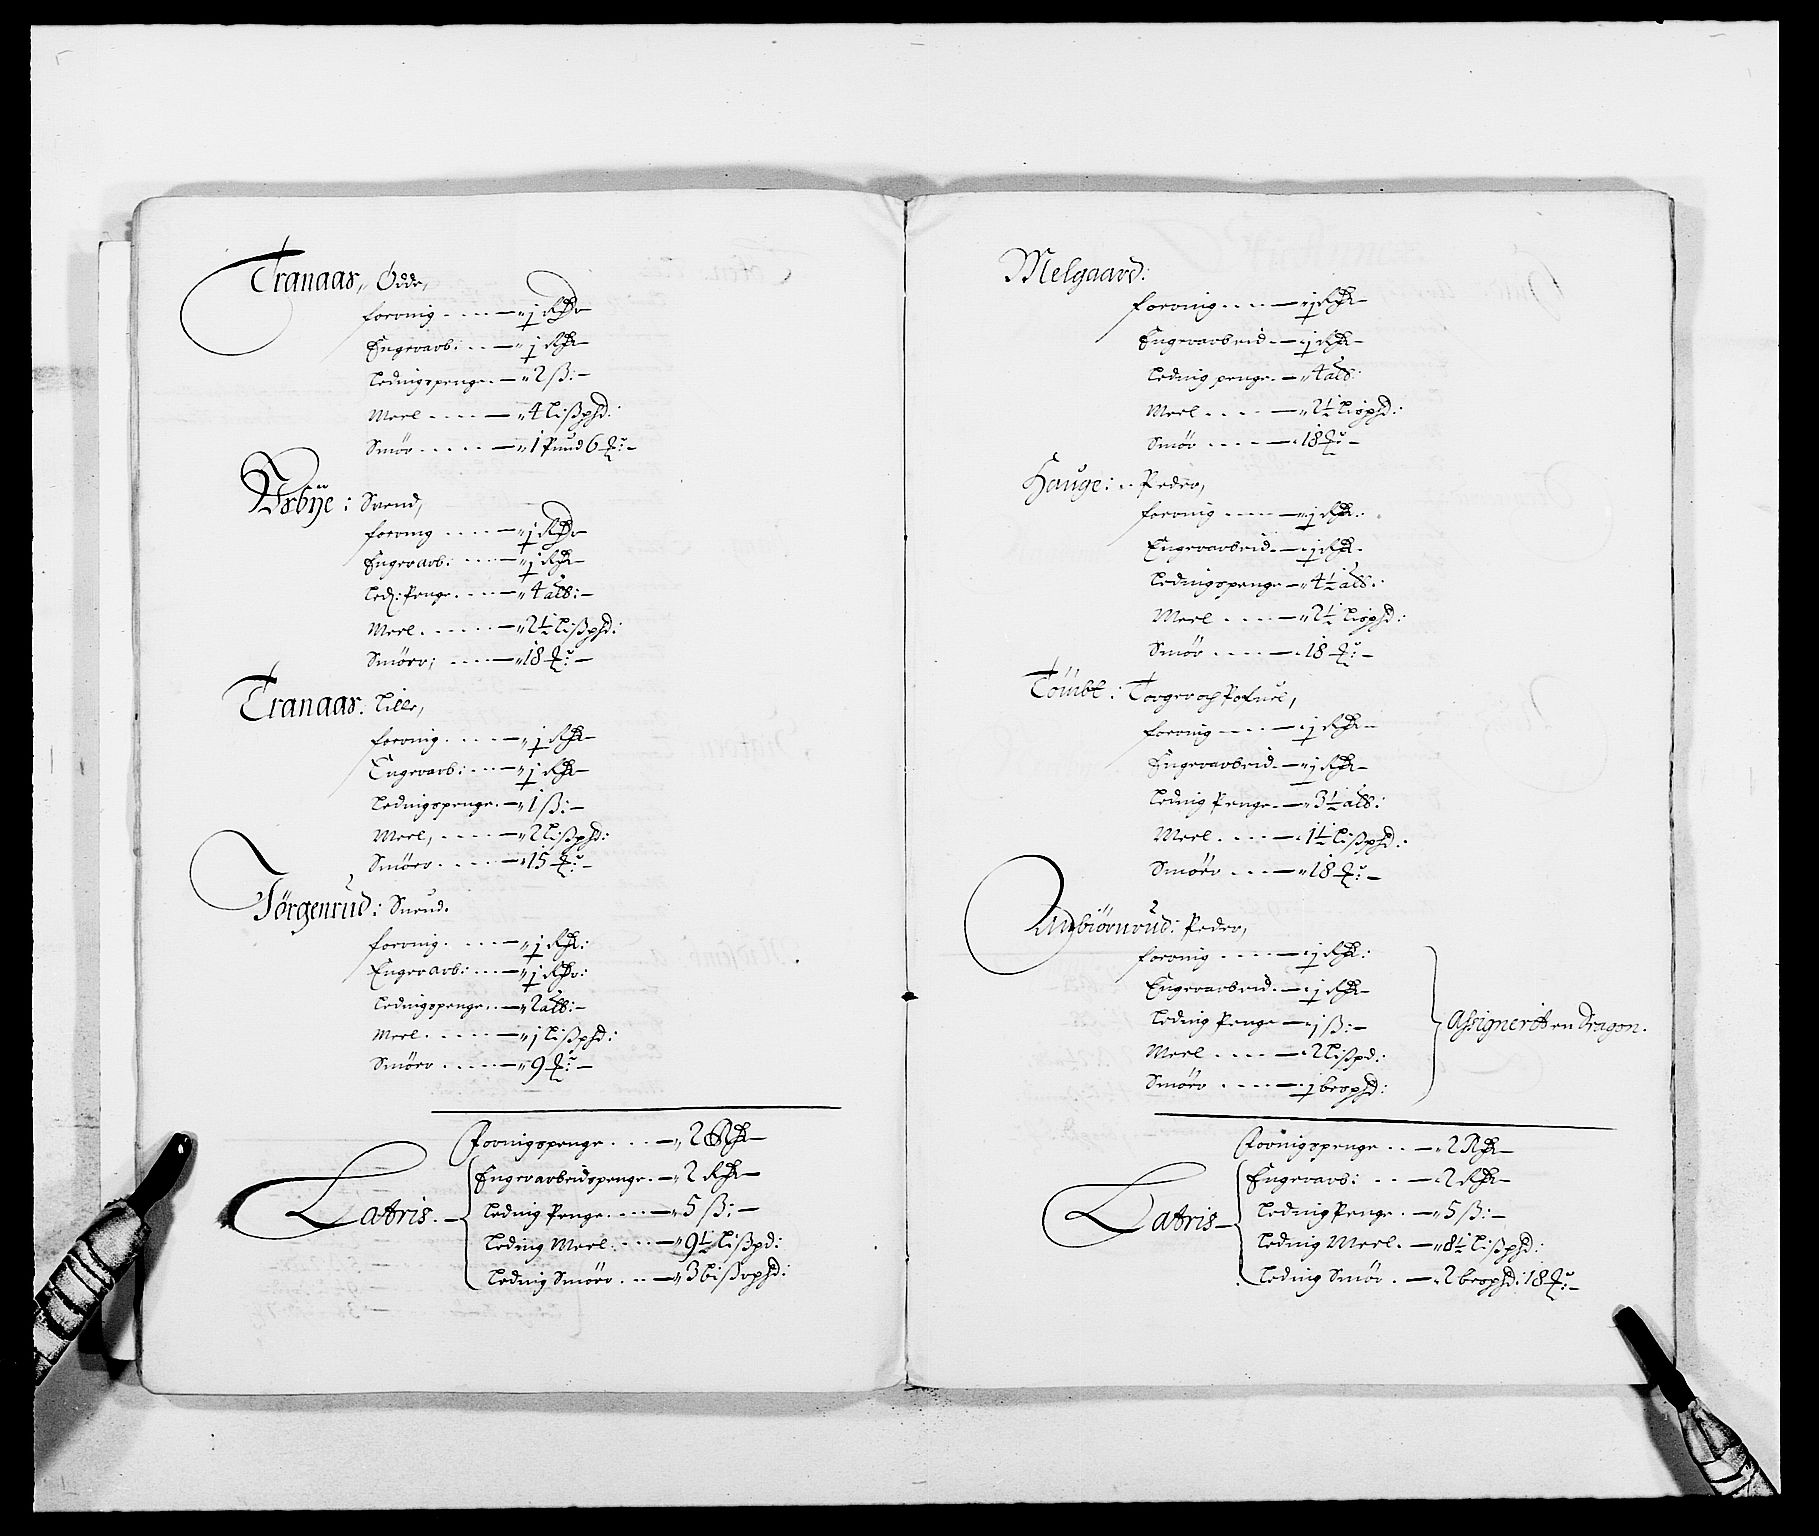 Tranaas, Odde,
foering . . . . — „ j Rdr
Engerarb: . . . — „ j Rdr —
Ledingspenge. — „ 2 ß: —
Meel . . . . — „ 4 Lißpꝭd:
Smör . . . . . — „ 1 Pund 6 ℔: —
Aasbÿe: Svend,
foering . . . . — „ j Rdr
Engerarb: . . . — „ j Rdr —
Led: Penge. . . . — „ 4 alb: —
Meel. . . . . . — „ 2½ Lißpd:
Smörr; . . . . — „ 18 ℔: —
Tranaas. Lille,
foering. . . . . — „ j Rdr —
Engerarb: . . . — „ j Rdr —
Ledingspenge. — „ 1 ß: —
Meel, . . . . . — „ 2 Lißpd:
Smörr. . . . . — „ 15 ℔: —
Jörgenrud: Snend.
foering. . . . . — „ j Rdr:
Engerarb: . . . — „ j Rdr:
Ledingspenge. . — „ 2 alb: —
Meel. . . . . . — „ j Lißpd:
Smörr . . . . . — „ 9 ℔: —
Latris. —
Forningspenge . . . — „ 2 Rdr —
Engerarbeidspenge. — „ 2 Rdr —
Leding Penge. . . . — „ 5 ß: —
Leding Meel. . . . — „ 9½ Lißpd:
Leding Smörr . . . — „ 3 bißrpd:
Melgaard:
foering . . . . — „ j Rdr
Engerarbeid. — „ j Rdr —
Leding penge. — „ 4 alb:
Meel . . . . . — „ 2½ Lispd:
Smör . . . . — „ 18 ℔: —
Hauge: Peder,
foering . . . . — „ j Rdr:
Engerarbeid. — „ j Rdr.
Ledingspenge — „ 4½ alb.:
Meel . . . . — „ 2½ Lispd:
Smör . . . . — „ 18 ℔: —
Tömbt: Torger och Pofuel,
foering . . . . — „ j Rdr —
Engerarbeid. — „ j Rdr —
Leding Penge. — „ 3½ alb:
Meel. . . . . — „ 1½ Lißpd:
Smörr . . . — „ 18 ℔: —
Anbiörnrud: Peder,
foering . . . . — „ j Rdr:
Engerarbeid. — „ j Rdr —
Leding Penge — „ j ß: —
Meel . . . . — „ 2 Lißpd:
Smörr . . . . — „ j brspd:
Assignerit en Dragon.
Latris —
Forningspenge . . — „ 2 Rdr —
Engerarb: . . . — „ 2 Rdr —
Leding Penge . — „ 5 ß: —
Leding Meel. — „ 8½ Lißpd:
Leding Smör . — „ 2 brspd: 18 ℔: —